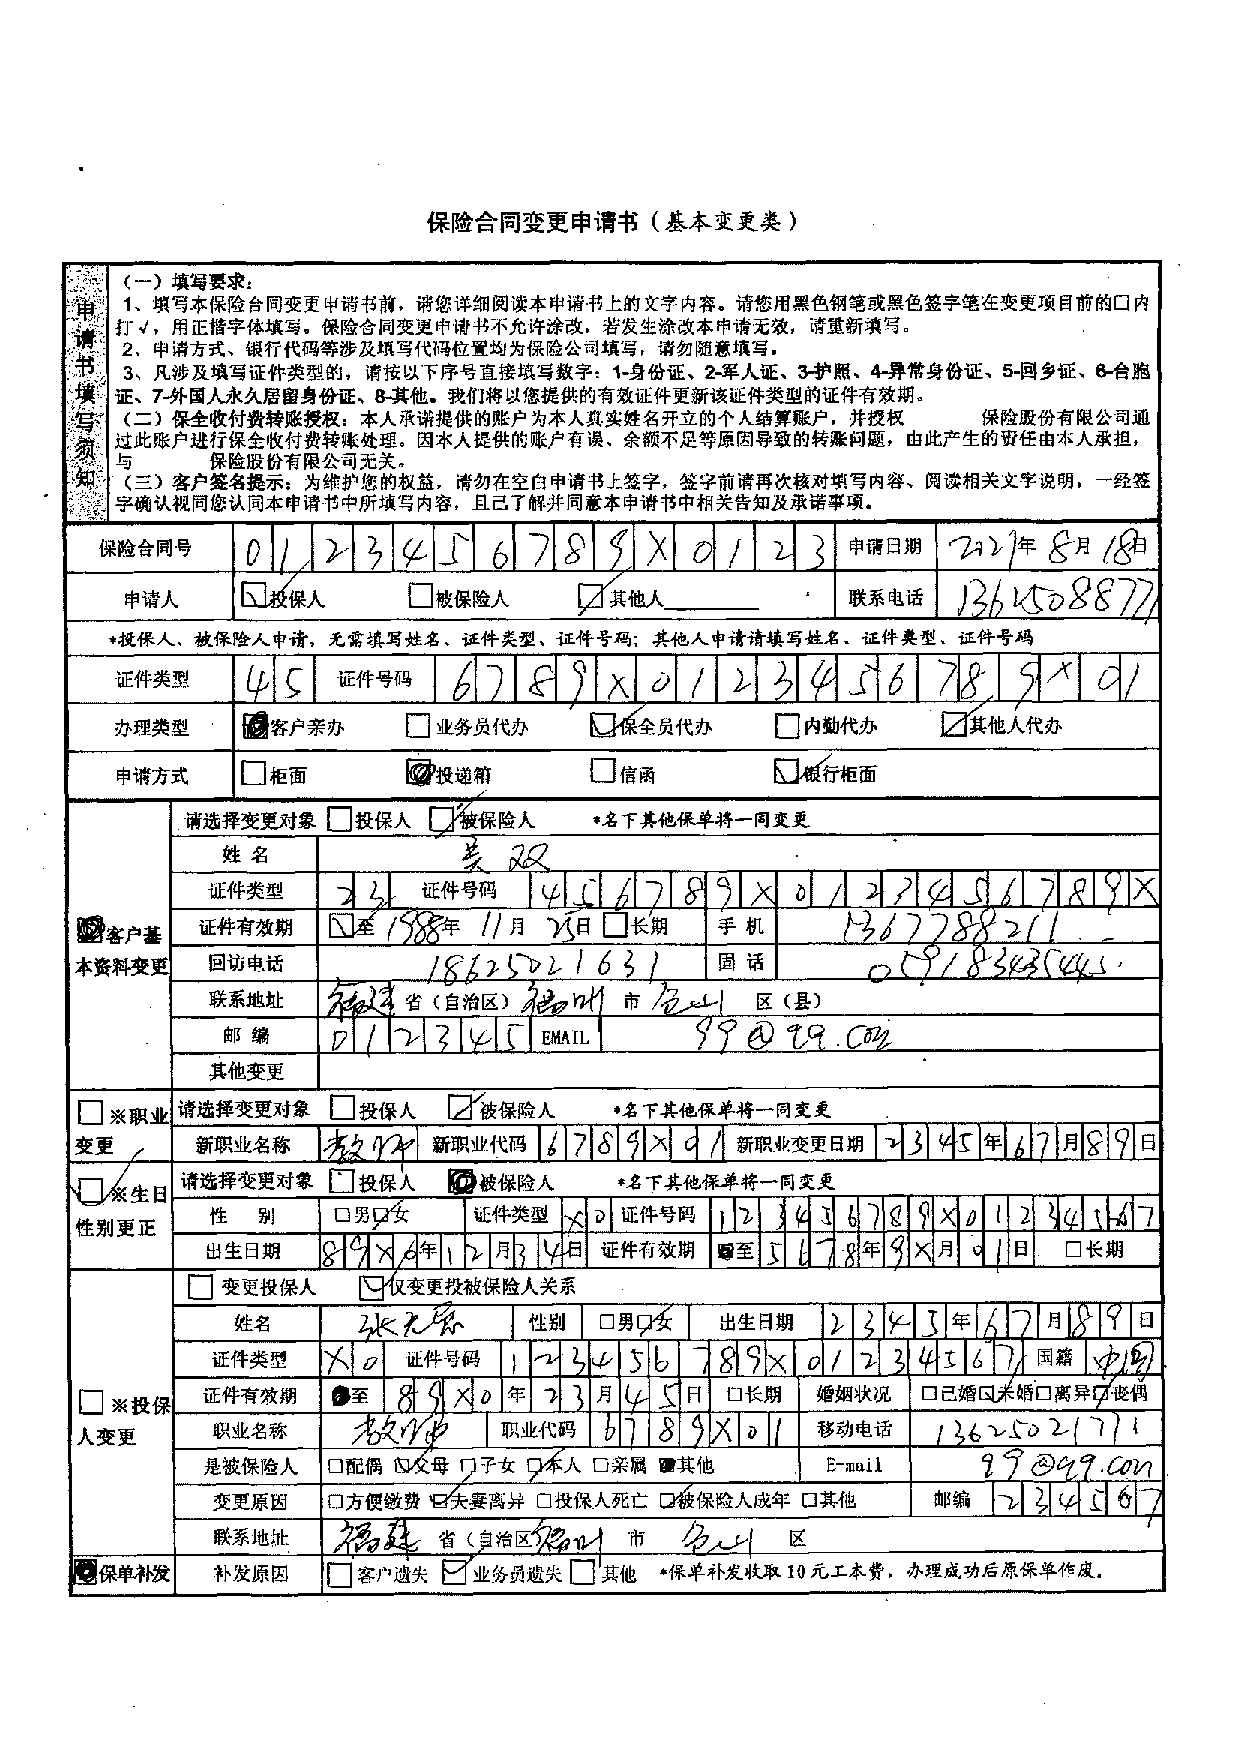 保险合同变更申请书（基本变更类）
申请书填写须知
（一）填写要求：
1、填写本保险合同变更申请书前，请您详细阅读本申请书上的文字内容。请您用黑色钢笔或黑色签字笔在变更项目前的□内
打√，用正楷字体填写。保险合同变更申请书不允许涂改，若发生涂改本申请无效，请重新填写。
2、申请方式、银行代码等涉及填写代码位置均为保险公司填写，请勿随意填写。
3、凡涉及填写证件类型的，请按以下序号直接填写数字：1-身份证、2-军人证、3-护照、4-异常身份证、5-回乡证、6-台胞
证、7-外国人永久居留身份证、8-其他。我们将以您提供的有效证件更新该证件类型的证件有效期。
（二）保全收付费转账授权：本人承诺提供的账户为本人真实姓名开立的个人结算账户，并授权 保险股份有限公司通
过此账户进行保全收付费转账处理。因本人提供的账户有误、余额不足等原因导致的转账问题，由此产生的责任由本人承担，
与 保险股份有限公司无关。
（三）客户签名提示：为维护您的权益，请勿在空白申请书上签字，签字前请再次核对填写内容、阅读相关文字说明，一经签
字确认视同您认同本申请书中所填写内容，且已了解并同意本申请书中相关告知及承诺事项。
保险合同号 0123456789X0123 申请日期 2021年8月18日
申请人 □投保人 □被保险人 □其他人 联系电话
*投保人、被保险人申请，无需填写姓名、证件类型、证件号码；其他人申请请填写姓名、证件类型、证件号码
证件类型 45 证件号码 6789X0123456789X01
办理类型 □客户亲办 □业务员代办 □保全员代办 □内勤代办 □其他人代办
申请方式 □柜面 □投递箱 □信函 □银行柜面
□客户基本资料变更
请选择变更对象 □投保人 □被保险人 *名下其他保单将一同变更
姓名 吴双
证件类型 23 证件号码 456789X0123456789X
证件有效期 □至1988年11月25日 □长期 手机 13677788211
回访电话 18625021631 固话 059183435445
联系地址 福建省（自治区）福州市仓山区（县）
邮编 012345 EMAIL 99@qq.com
其他变更
□※职业变更
请选择变更对象 □投保人 □被保险人 *名下其他保单将一同变更
新职业名称 教师 新职业代码 6789X01 新职业变更日期 2345年67月89日
□※生日性别更正
请选择变更对象 □投保人 □被保险人 *名下其他保单将一同变更
性别 □男□女 证件类型 X0 证件号码 123456789X01234567
出生日期 89X0年12月34日 证件有效期 □至5678年9X月01日 □长期
□※投保人变更
□变更投保人 □仅变更投被保险人关系
姓名 张无忌 性别 □男□女 出生日期 2345年67月89日
证件类型 X0 证件号码 123456789X01234567 国籍 中国
证件有效期 □至89X0年23月45日 □长期 婚姻状况 □已婚□未婚□离异□丧偶
职业名称 教师 职业代码 6789X01 移动电话 13625021771
是被保险人 □配偶 □父母 □子女 □本人 □亲属 □其他 E-mail 99@qq.com
变更原因 □方便缴费 □夫妻离异 □投保人死亡 □被保险人成年 □其他 邮编 234567
联系地址 福建省（自治区 福州市 仓山区
□保单补发 补发原因 □客户遗失 □业务员遗失 □其他 *保单补发收取10元工本费，办理成功后原保单作废。